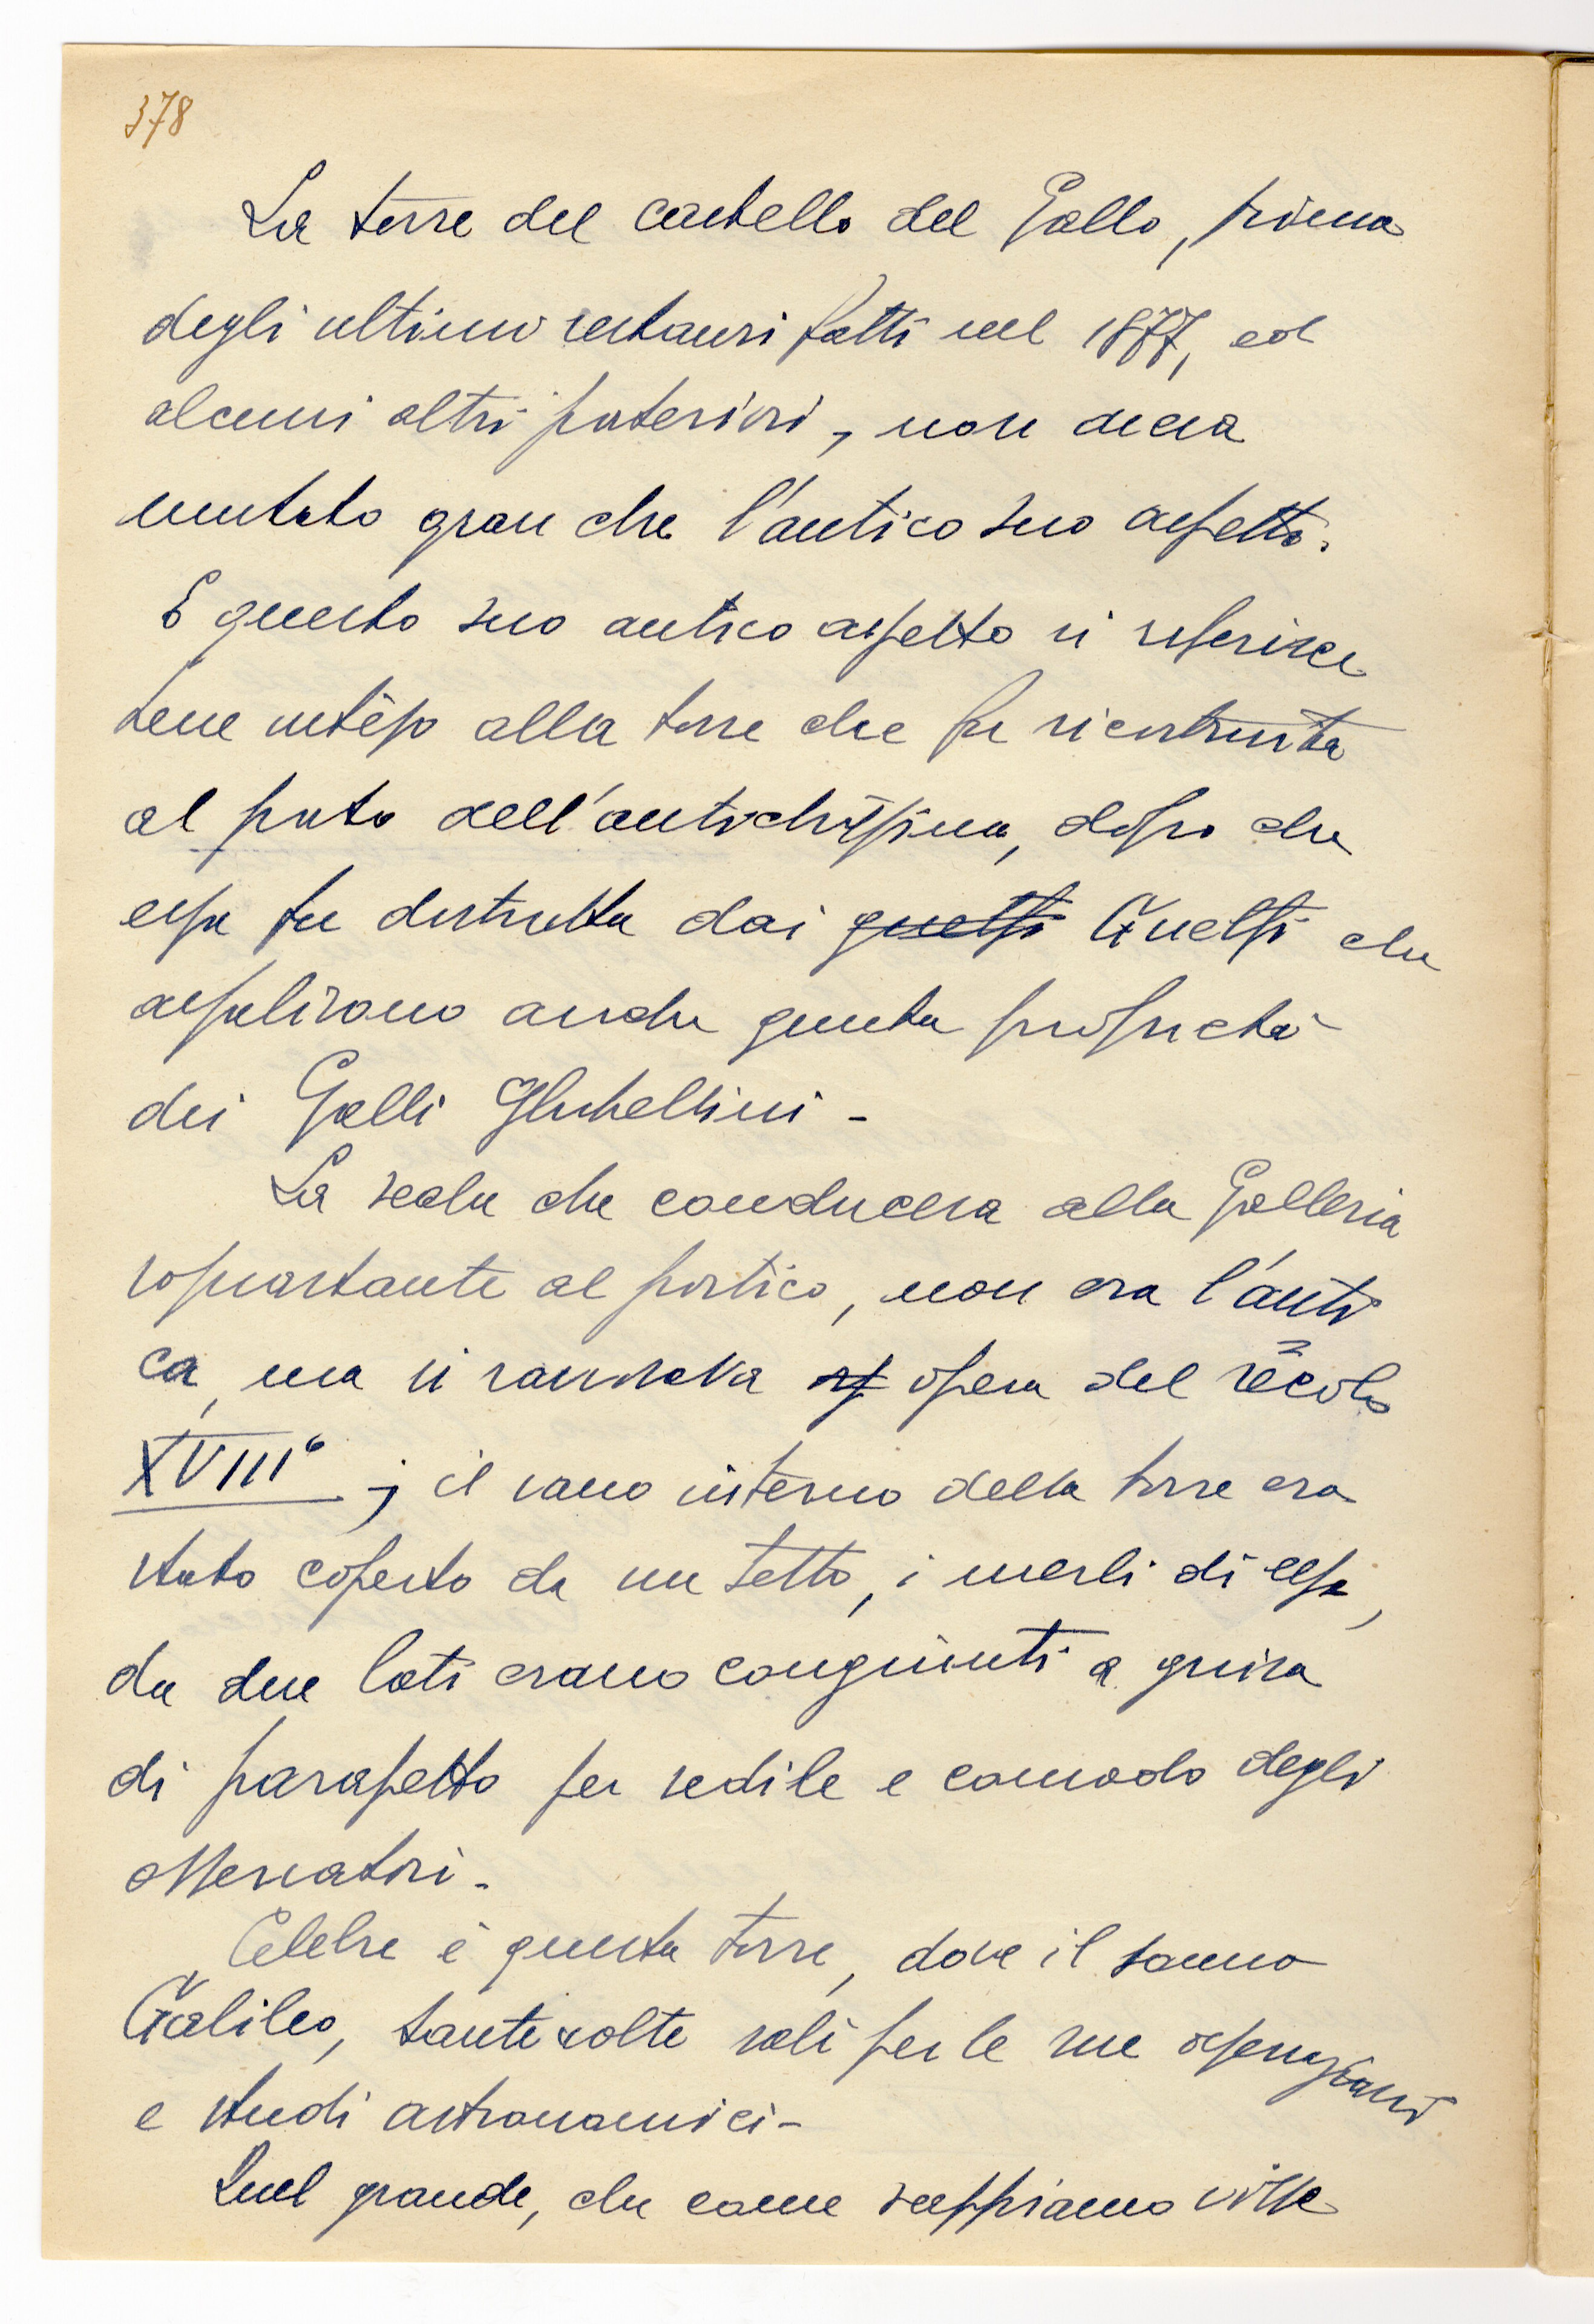 378
La torre del castello del Gallo, prima
degli ultimi restauri fatti nel 1877, ed
alcuni altri posteriori, non aveva
mutato gran che l'antico suo aspetto.
E questo suo antico aspetto si riferisce
bene inteso alla torre che fu ricostruita
al posto dell'antichissima, dopo che
essa fu distrutta dai guelfi Guelfi che
assalirono anche questa proprietà
dei Galli Ghibellini -
La scala che conduceva alla Galleria
soprastante al portico, non era l'anti
ca, ma si ravvisava opera del secolo
XVIII° ; il vano interno della torre era
stato coperto da un tetto, i merli di essa,
da due lati erano congiunti a guisa
di parapetto per sedile e comodo degli
osservatori -
Celebre è questa torre, dove il sommo
Galileo, tante volte salì per le sue osservazioni
e studi astronomici -
Quel grande, che come sappiamo visse